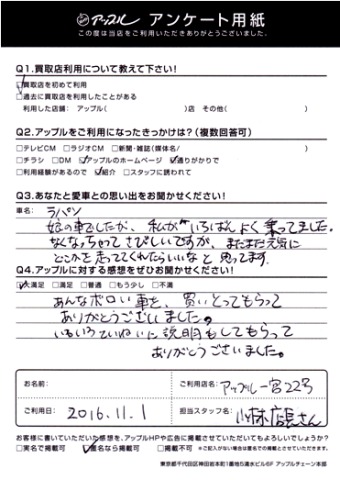 アップル アンケート用紙
この度は当店をご利用いただきありがとうございました。
Q1.買取店利用について教えて下さい!
☑買取店を初めて利用
□過去に買取店を利用したことがある
利用した店舗: アップル( )店 その他( )
Q2.アップルをご利用になったきっかけは?(複数回答可)
□テレビCM □ラジオCM □新聞・雑誌(媒体名/ )
□チラシ □DM ☑アップルのホームページ ☑通りがかりで
□利用経験があるので ☑紹介 □スタッフに誘われて
Q3.あなたと愛車との思い出をお聞かせください!
車名: ラパン
娘の車でしたが、私がいちばんよく乗ってました。
なくなっちゃってさびしいですが、まだまだ元気に
どこかを走っててくれたらいいなと思ってます。
Q4.アップルに対する感想をぜひお聞かせください!
☑大満足 □満足 □普通 □もう少し □不満
あんなボロい車を、買いとってもらって
ありがとうございました。
いろいろていねいに説明もしてもらって
ありがとうございました。
お名前:
ご利用店名: アップル一宮22号
ご利用日: 2016.11.1
担当スタッフ名: 小林店長さん
お客様に書いていただいた感想を、アップルHPや広告に掲載させていただいてもよろしいでしょうか?
□実名で掲載可 ☑匿名なら掲載可 □掲載不可 ※ご記入がない場合は匿名で掲載させていただきます。
東京都千代田区神田岩本町1番地5清水ビル6F アップルチェーン本部